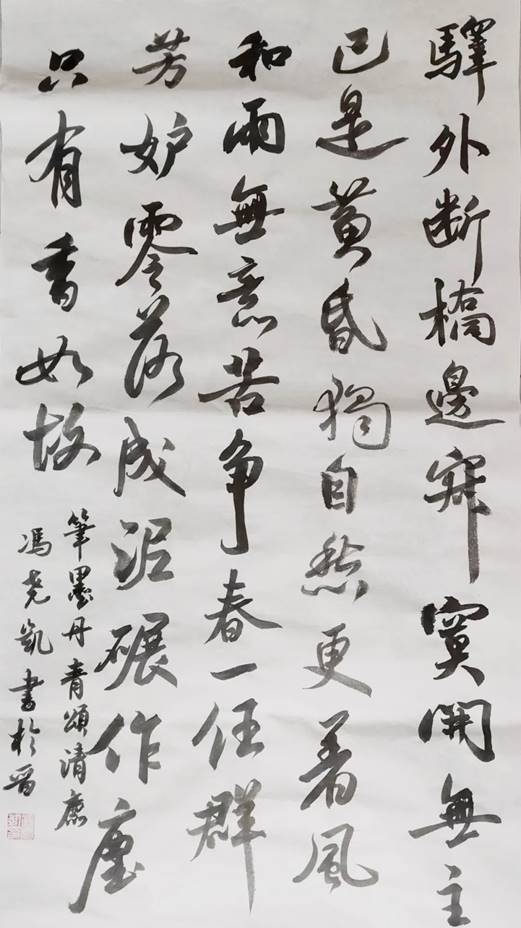 驛外斷橋邊寂寞開無主
已是黄昏獨自愁更着風
和雨無意苦争春一任群
芳妒零落成泥碾作塵
只有香如故
筆墨丹青頌清廉
馮堯凱書於晋